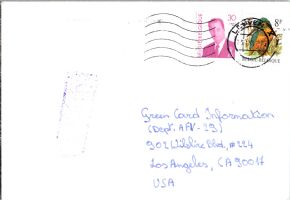 30
8F
BELGIE-BELGIQUE
Green Card Information
(Dept. APV-29)
902 Wilshire Blvd, #224
Los Angeles, CA 90017
USA